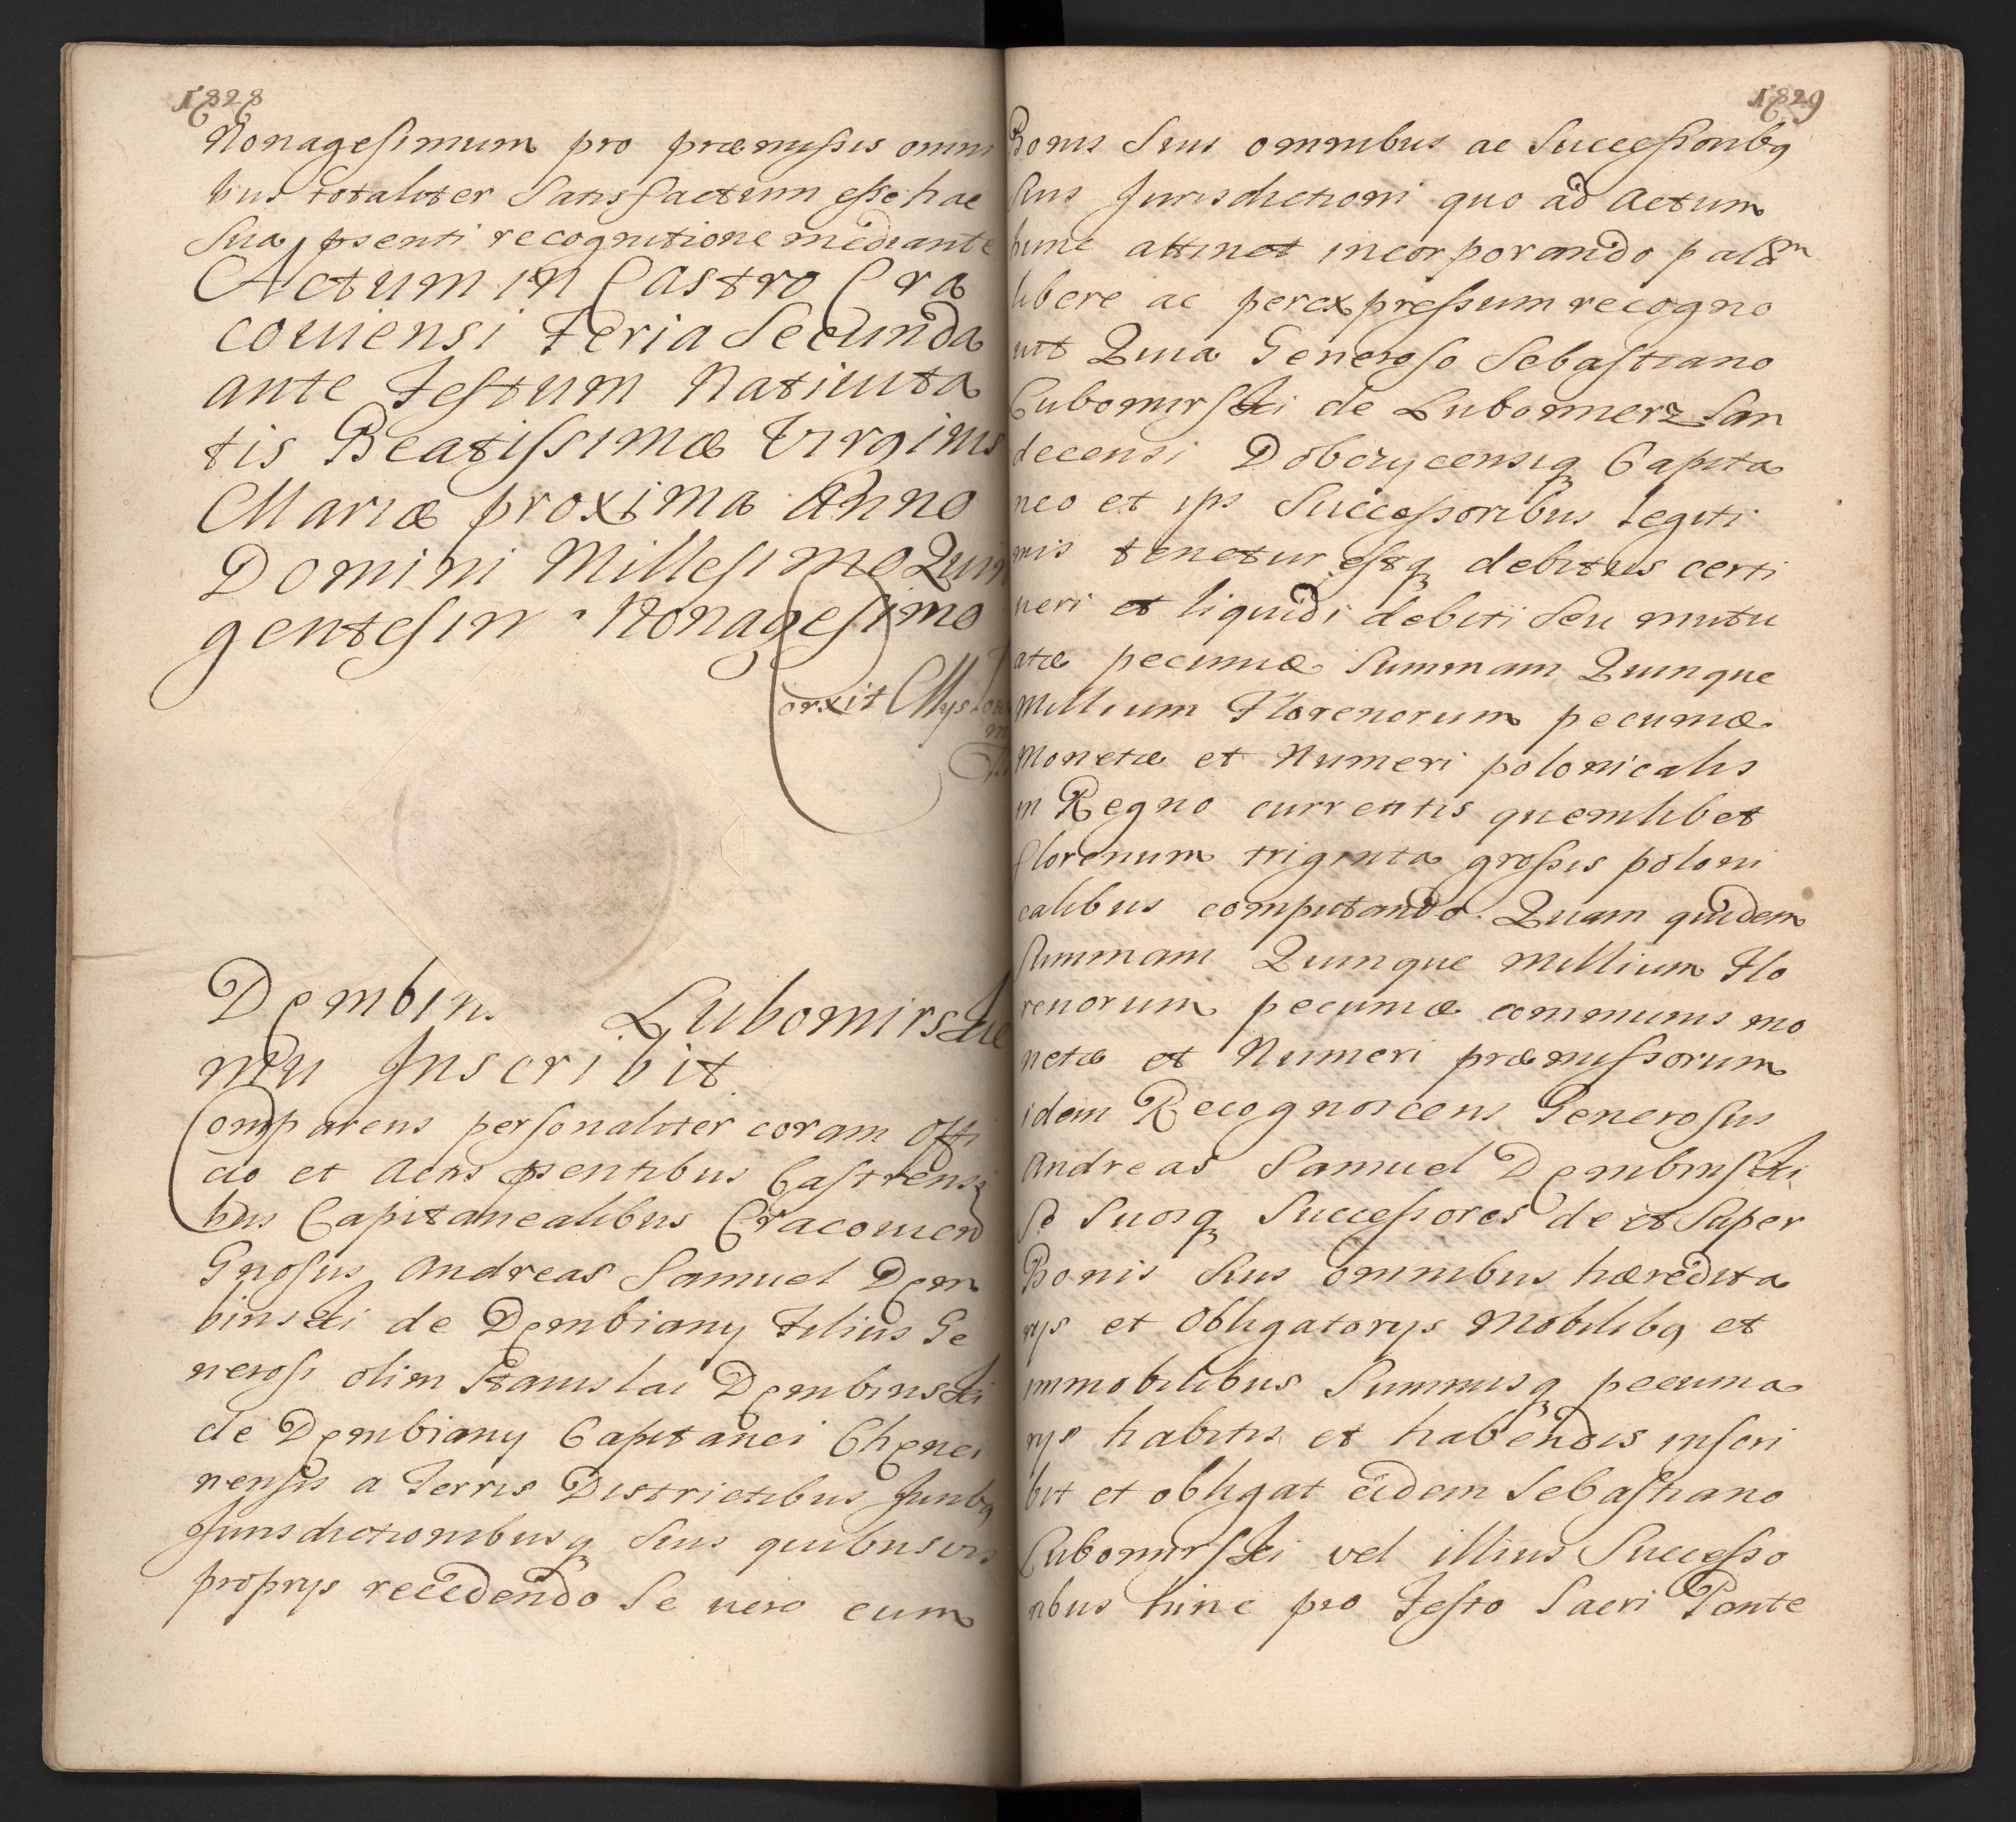 1828
Nonagesimum pro præmissis omni
bus totaliter Satisfactum esse hac
Sua psenti recognitione mediante
Actum in Castro Cra
couiensi Feria Secunda
ante Festum Natiuita
tis Beatissimæ Virginis
Mariæ proxima Anno
Domini Millesimo Quin
gentesim Nonagesimo
Corxit
Dembin. Lubomirskie
mu Inscribit
Comparens personaliter coram Offi
cio et Actis psentibus Castrensi
bus Capitanealibus Cracouien
Gnosus Andreas Samuel Dem
binski de Dembiany Filius Ge
nerosi olim Stanislai Dembinski
de Dembiany Capitanei Chenci
nensis a Terris Districtibus Juribq
Jurisdictionibusq Suis quibusuis
proprys recedendo Se uero cum
1829
Bonis Suis omnibus ac Successoribq
Suis Jurisdictioni quo ad Actum
hunc attinet incorporando pal&m
libere ac per expressum recogno
uit Quia Generoso Sebastiano
Lubomirski de Lubomierz San
decensi Dobczycensiq Capita
neo et ips Successoribus legiti
mis tenetur estq debitus certi
ueri et liquidi debiti Seu mutu
atæ pecuniæ Summam Quinque
Millium Florenorum pecuniæ
Monetæ et Numeri polonicalis
in Regno currentis quemlibet
florenum triginta grossis poloni
calibus computando. Quam quidem
Summam Quinque Millium Flo
renorum pecuniæ communis mo
netæ et Numeri præmissorum
idem Recognoscens Generosus
Andreas Samuel Dembinski
Se Suosq Successores de et Super
Bonis Suis omnibus hæredita
rys et Obligatorys Mobilibq et
immobilibus Summisq pecunia
rys habitis et habendis inscri
bit et obligat eidem Sebastiano
Lubomirski vel illius Successo
ribus hinc pro Festo Sacri Pente